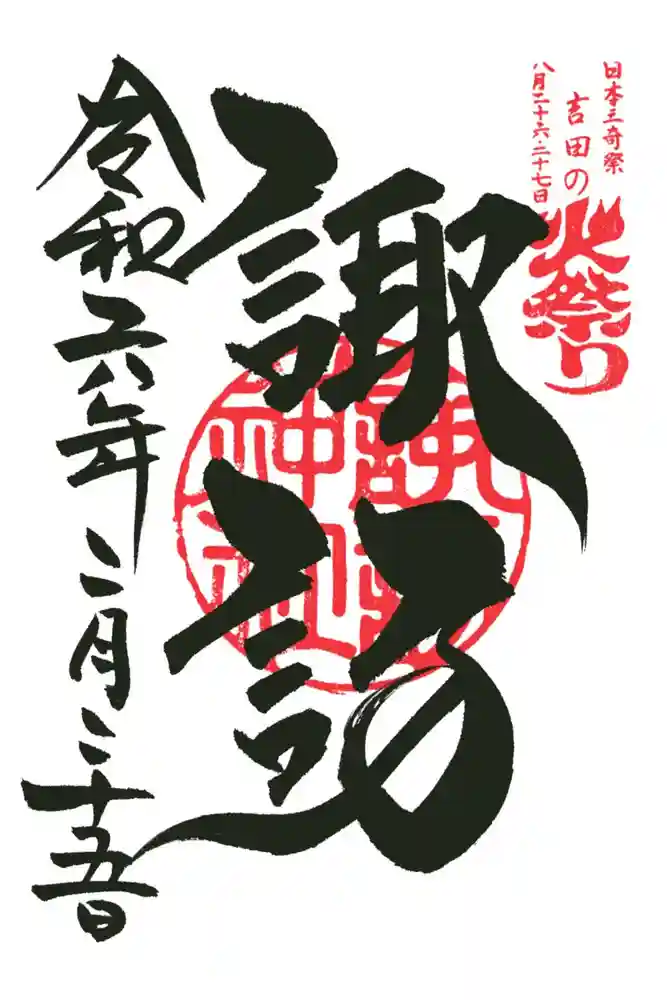 日本三奇祭
吉田の
火祭り
八月二十六・二十七日
諏訪
諏訪
神社
令和六年二月二十五日